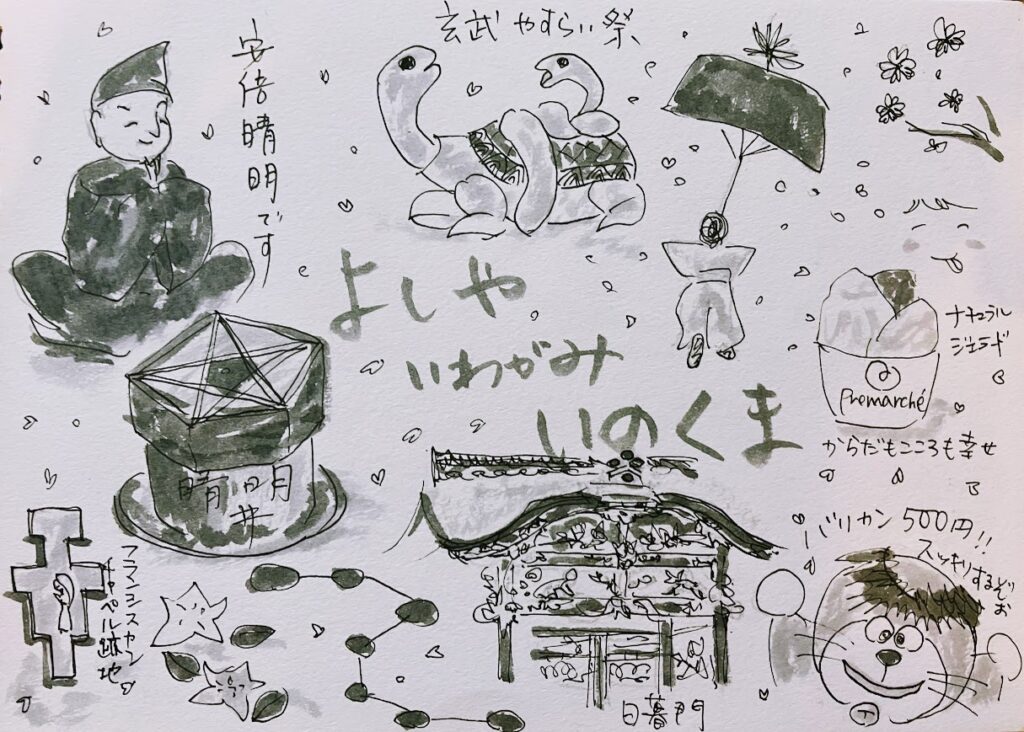 玄武やすらい祭
安倍晴明です
よしや
いわがみ
いのくま
ナチュラル
ジェラート
Premarché
からだもこころも幸せ
晴明井
フランシスカン
チャペル跡地
バリカン500円!!
スッキリするぞぉ
日暮門